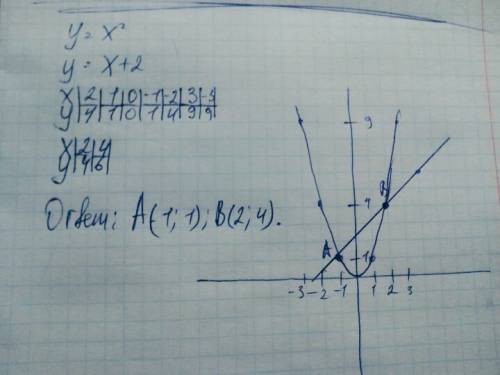 y = x²
y = x+2
x | 2 | 1 | 0 | -1 | -2 | 3 | -3
y | 4 | 1 | 0 | 1 | 4 | 9 | 9
x | 2 | 4
y | 4 | 6
Ответ: A(1; 1); B(2; 4).
9
4
B
A
1
-3 -2 -1 1 2 3